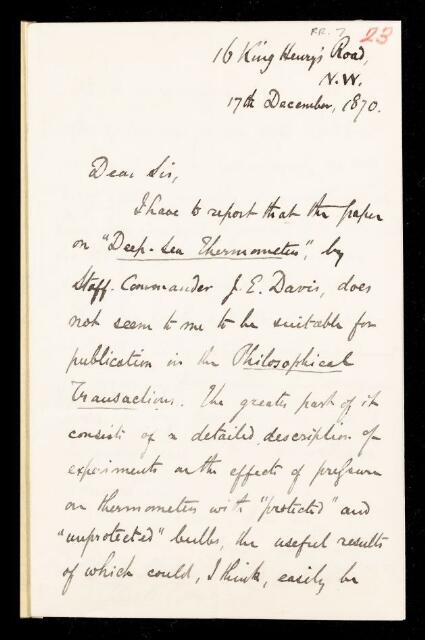 RR. 7
23
16 King Henry's Road,
N.W.
17th December, 1870.
Dear Sir,
I have to report that the paper
on "Deep-Sea Thermometers", by
Staff-Commander J. E. Davis, does
not seem to me to be suitable for
publication in the Philosophical
Transactions. The greater part of it
consists of a detailed description of
experiments on the effects of pressure
on thermometers with "protected" and
"unprotected" bulbs, the useful results
of which could, I think, easily be